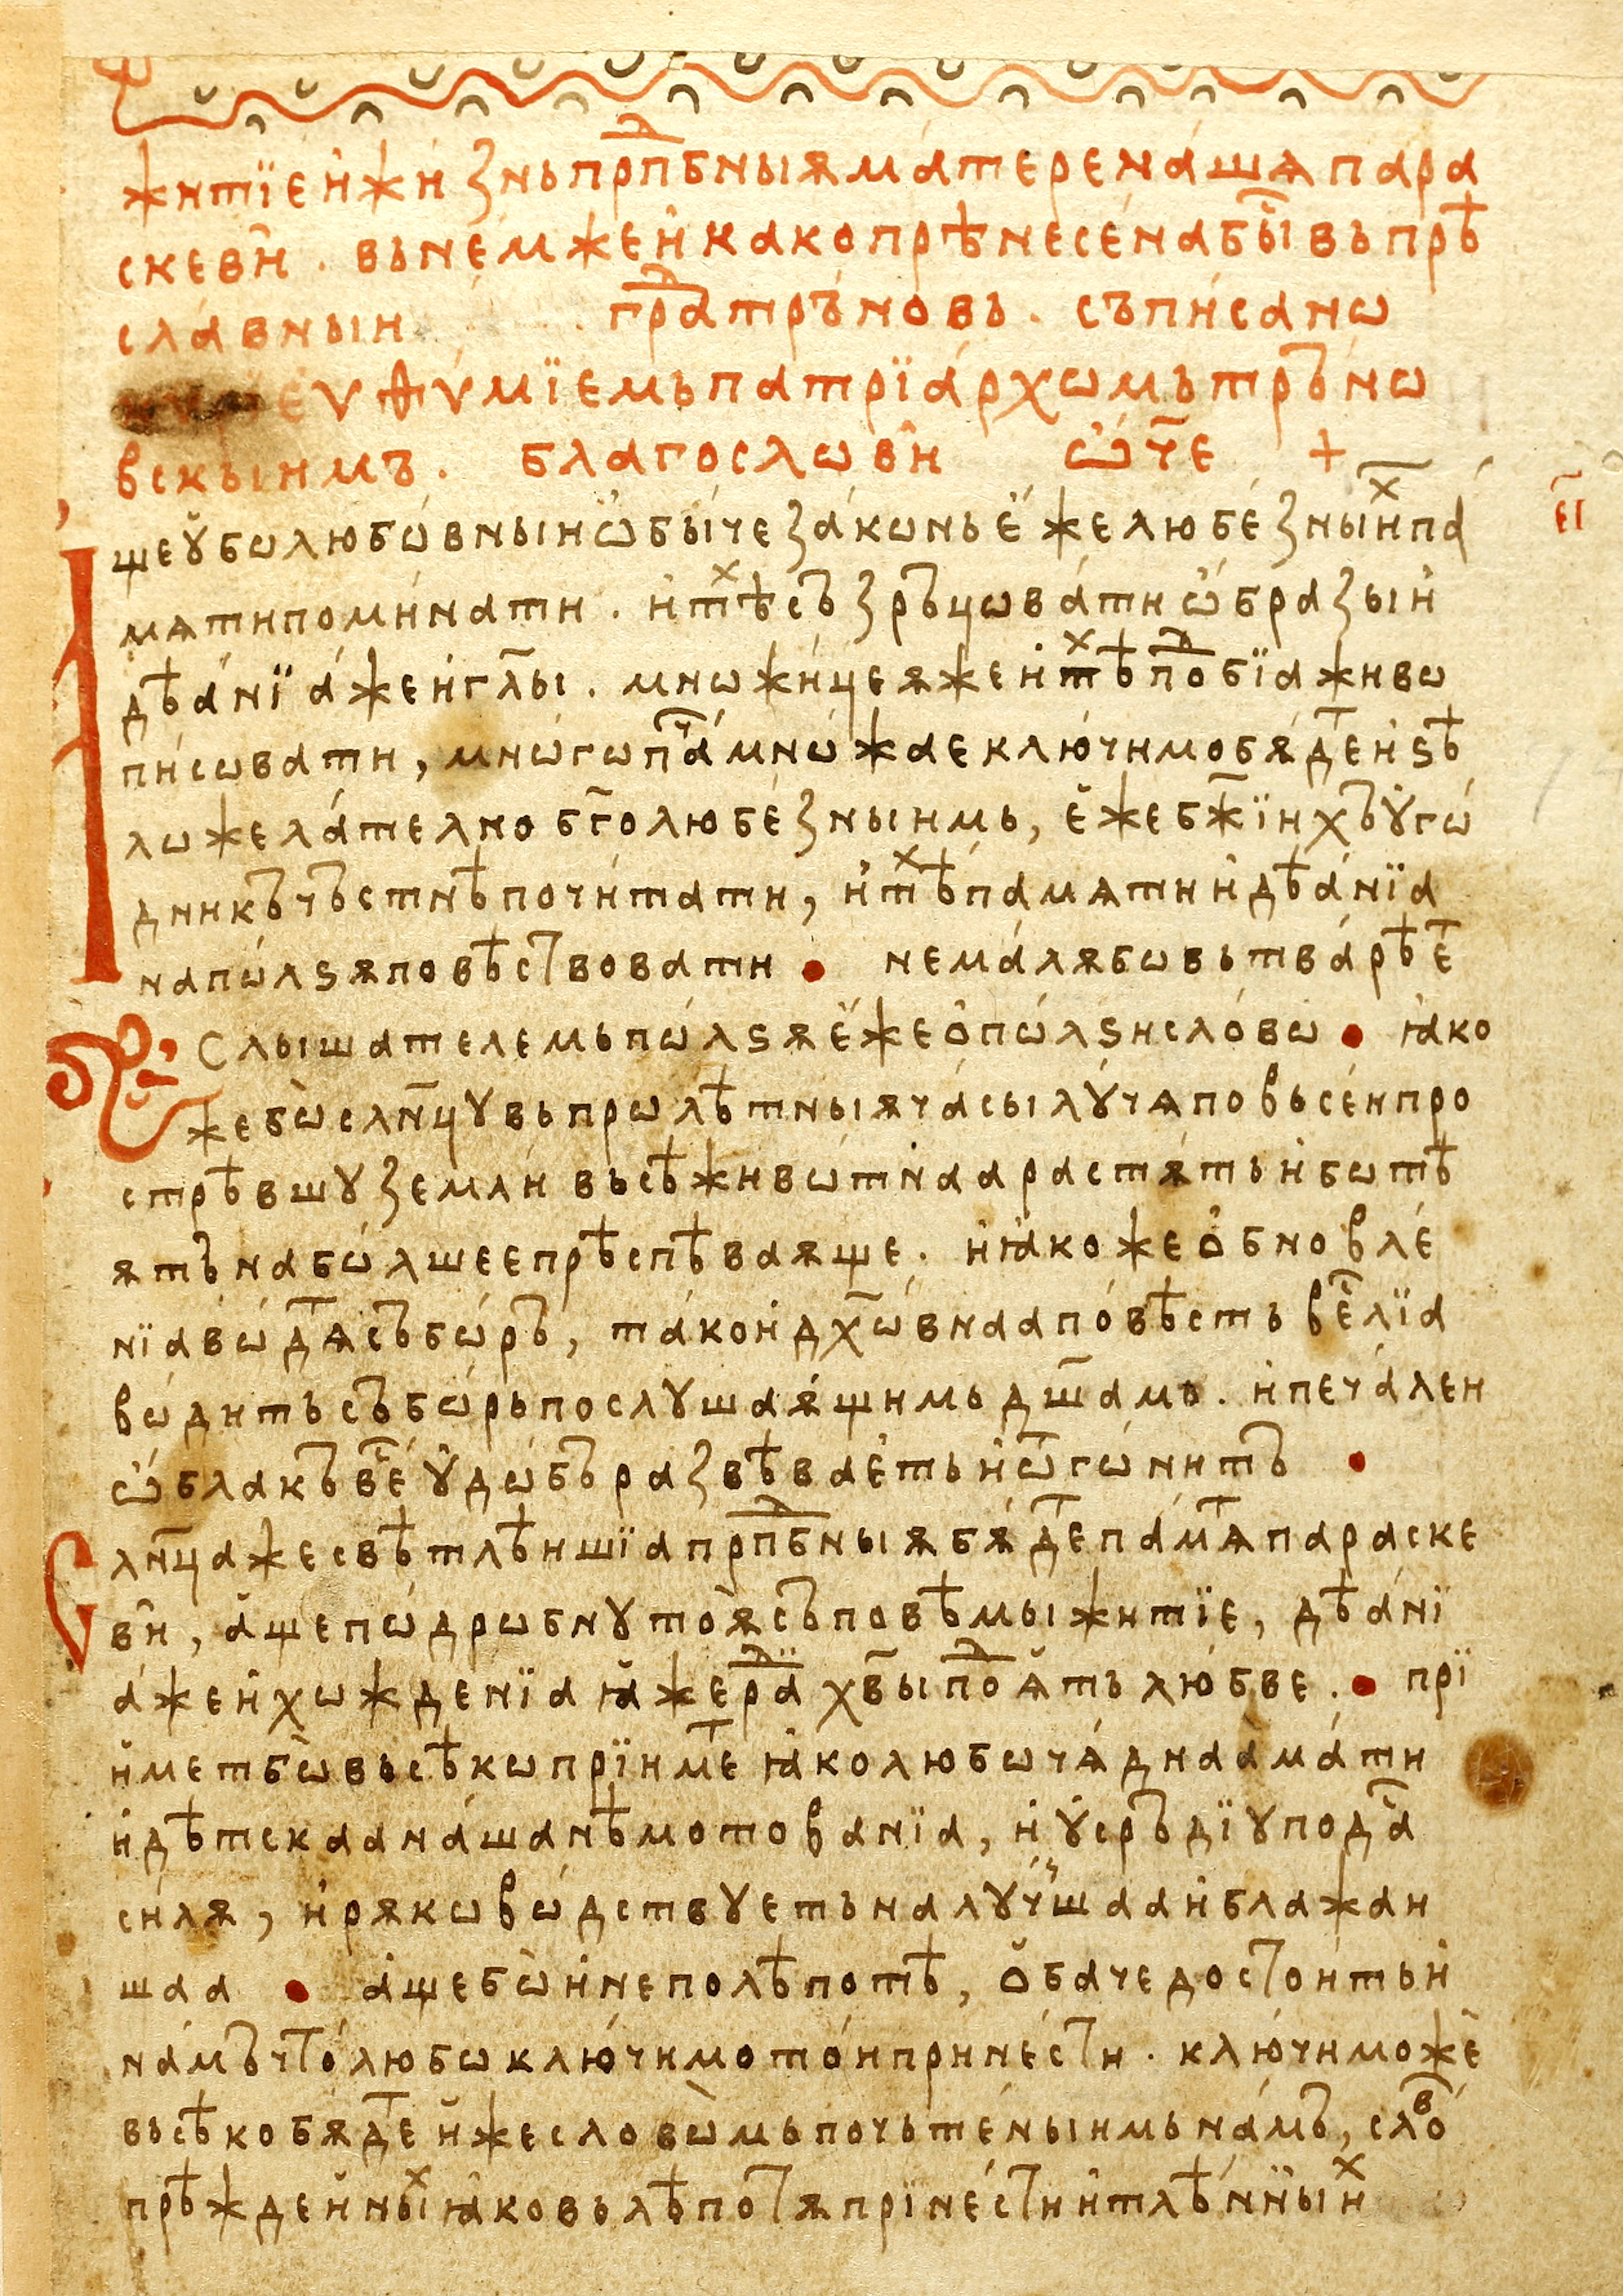 житїе и҆ жи́знь прⷣпбныѫ ма́тере на́шѧ пара
скеви̂ . вь не́мже и҆ како прѣнесена̀ бы́ⷭ вь прѣ
сла́вныи гра́ⷣ трьновь . съпи́сано
еѵѳѵ́мїемь патрїа́рхомь трь́но
вскыимъ . благослови̂ ѡ҆́ч҃е +
ще ѹ҆бѡ любо́вныи ѡ҆бы́че зако́нь є҆́же любе́зныиⷯ па́
мѧти помина́ти . и҆ тѣⷯ сь зрьцова́ти ѡ҆́бразы и҆
дѣа́нїа же и҆ гл҃ы . мно́жицеѫ же и҆ тѣⷯ поⷣбїа живо
писова́ти , мно́гѡ па́ⷱ мно́жае клю́чимо бѫ́деⷮ и҆ ѕѣ
лѡ жела́телно бг҃олюбе́зныимь , є҆́же бж҃їихь ѹ҆го́
дникь чь́стнѣ почи́тати , и҆ тѣⷯ па́мѧти и҆ дѣа́нїа
на по́лѕѫ повѣ́ствовати • не ма́лѫ бѡ вь тва́рѣ еⷮ
слы́шателемь по́лѕѫ є҆́же ѻ҆ по́лѕи сло́во • ꙗ҆́ко
же бѡ̀ сл҃нцу вь про́лѣтныѫ часы̀ лу́чѧ по вьсе́и про
стрѣвшу землѝ вьсѣ живо́тнаа растѫ́ть и҆ботѣ
ѫть на бо́лшее прѣспѣваѫще . и҆ ꙗ҆́коже ѻ҆бновле́
нїа во́дѧⷮ съборь , та́ко и҆ дх҃о́внаа по́вѣсть ве́ⷭлїа
во́дить съборь послу́шаѫщимь дш҃амь . и҆ печа́леи
ѡ҆́блакь ве́ⷭ ѹ҆до́бь развѣва́еть и҆ ѿго́нить •
л҃нца же свѣтлѣ́ишїа прпⷣбныѫ бѫ́деⷮ па́мѧⷮ параске
ви̂ , а҆́ще по́дробну тоѫ̀ съповѣ́мы житїе , дѣа́нї
а́ же и҆ хожде́нїа ꙗ҆́же раⷣ хв҃ы поⷣѧть любве . • прї
и҆́мет бѡ̀ вьсѣко прїи́меⷮ ꙗ҆́ко любоча́днаа ма́ти
и҆ дѣтскаа на́ша нѣмотова́нїа , и҆ ѹ҆срь́дїу пода́ⷭ
си́лѫ , и҆ рѫковоⷣствуеть на лу́чьшаа и҆ блажаи
шаа • а҆́ще бѡ̀ и҆ не по лѣпотѣ , ѻ҆ба́че досто́итьи҆
на́мь чⷮо́ любо клю́чимо то́и принестѝ . клю́чимо же̂
вьсѣко бѫ́деⷮ и҆́же сло́вомь почьте́ныимь на́мь , слоⷡ
прѣжде и҆ныⷯ ꙗ҆́ко вь лѣпо́тѫ прїнестѝ и҆ тлѣ́нныиⷯ
є҃і